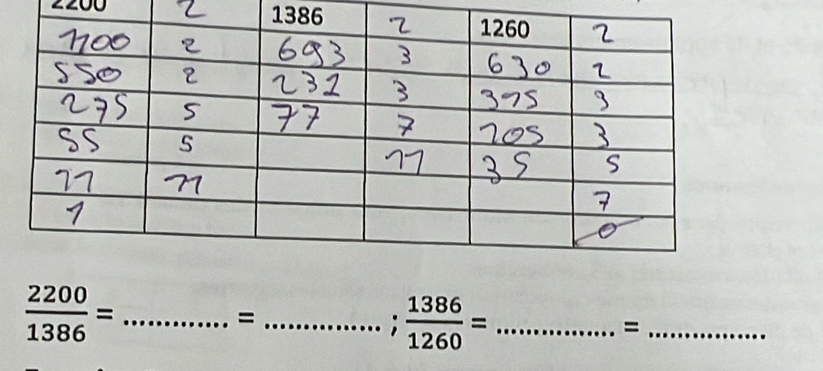 2200 2 1386 2 1260 2
1100 2 693 3 630 2
550 2 231 3 315 3
275 5 77 7 105 3
55 5 11 35 5
11 11 7
1 0
2200/1386 = ............. = ............... ; 1386/1260 = ............... = ...............